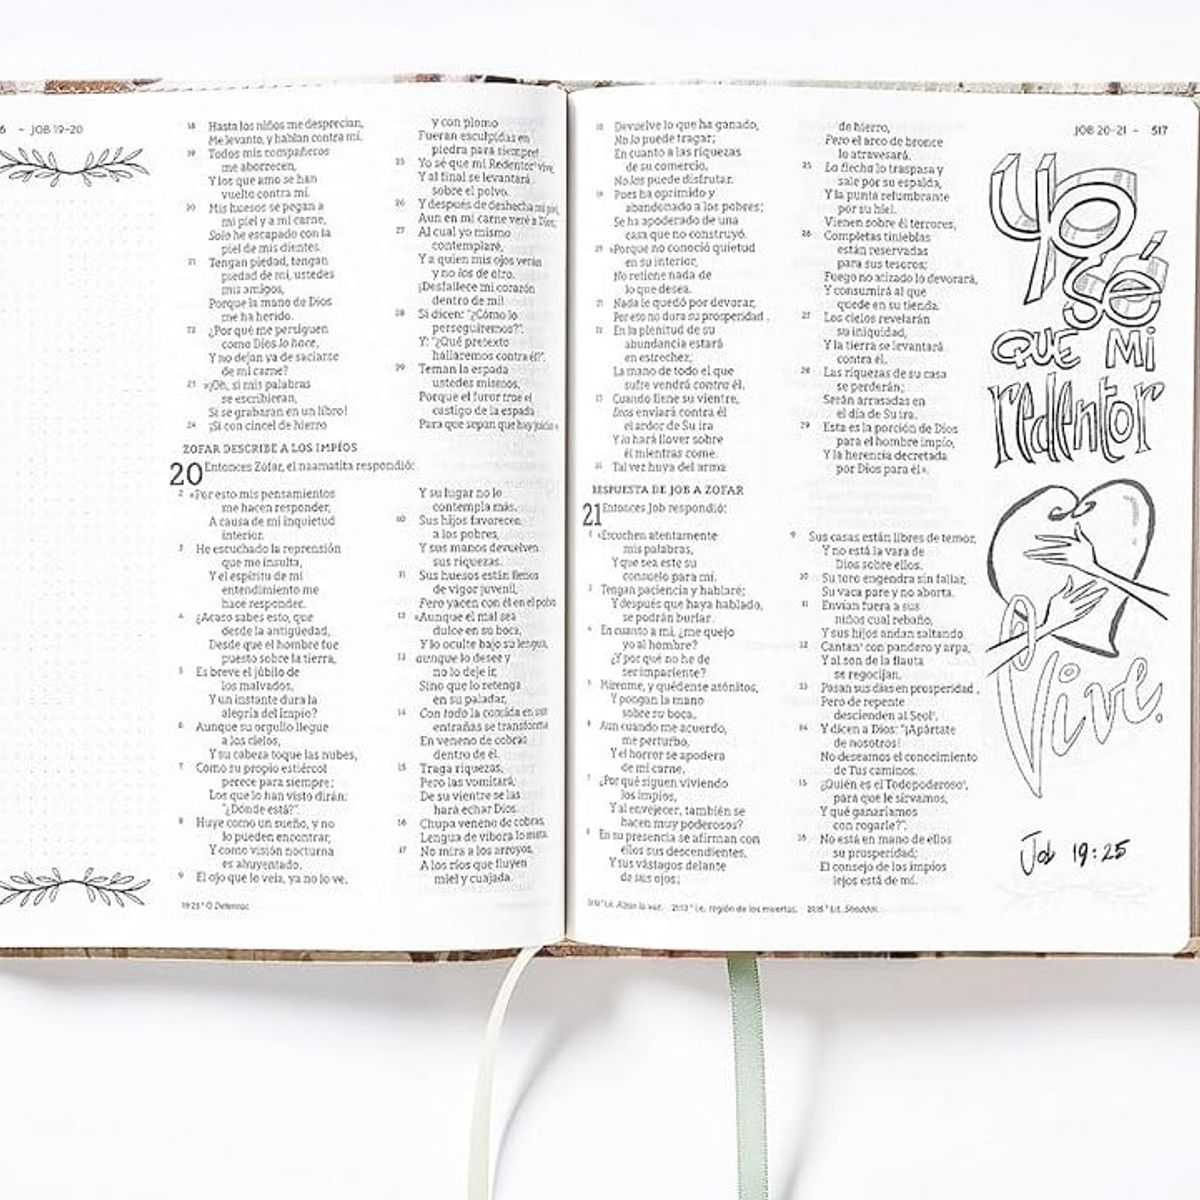 6 - JOB 19-20
18 Hasta los niños me desprecian,
Me levanto, y hablan contra mí.
19 Todos mis compañeros
me aborrecen,
Y los que amo se han
vuelto contra mí.
20 Mis huesos se pegan a
mi piel y a mi carne,
Solo he escapado con la
piel de mis dientes.
21 Tengan piedad, tengan
piedad de mí, ustedes
mis amigos,
Porque la mano de Dios
me ha herido.
22 ¿Por qué me persiguen
como Dios lo hace,
Y no dejan ya de saciarse
de mi carne?
23 »¡Oh, si mis palabras
se escribieran,
Si se grabaran en un libro!
24 ¡Si con cincel de hierro
y con plomo
Fueran esculpidas en
piedra para siempre!
25 Yo sé que mi Redentor* vive,
Y al final se levantará
sobre el polvo.
26 Y después de deshecha mi piel,
Aun en mi carne veré a Dios;
27 Al cual yo mismo
contemplaré,
Y a quien mis ojos verán
y no los de otro.
¡Desfallece mi corazón
dentro de mí!
28 Si dicen: "¿Cómo lo
perseguiremos?".
Y: "¿Qué pretexto
hallaremos contra él?".
29 Teman la espada
ustedes mismos,
Porque el furor trae el
castigo de la espada
Para que sepan que hay juicio».
ZOFAR DESCRIBE A LOS IMPÍOS
20 Entonces Zofar, el naamatita respondió:
2 «Por esto mis pensamientos
me hacen responder,
A causa de mi inquietud
interior.
3 He escuchado la reprensión
que me insulta,
Y el espíritu de mi
entendimiento me
hace responder.
4 ¿Acaso sabes esto, que
desde la antigüedad,
Desde que el hombre fue
puesto sobre la tierra,
5 Es breve el júbilo de
los malvados,
Y un instante dura la
alegría del impío?
6 Aunque su orgullo llegue
a los cielos,
Y su cabeza toque las nubes,
7 Como su propio estiércol
perece para siempre;
Los que lo han visto dirán:
"¿Dónde está?".
8 Huye como un sueño, y no
lo pueden encontrar,
Y como visión nocturna
es ahuyentado.
9 El ojo que lo veía, ya no lo ve,
Y su lugar no lo
contempla más.
10 Sus hijos favorecen
a los pobres,
Y sus manos devuelven
sus riquezas.
11 Sus huesos están llenos
de vigor juvenil,
Pero yacen con él en el polvo.
12 »Aunque el mal sea
dulce en su boca,
Y lo oculte bajo su lengua,
13 aunque lo desee y
no lo deje ir,
Sino que lo retenga
en su paladar,
14 Con todo la comida en sus
entrañas se transforma
En veneno de cobras
dentro de él.
15 Traga riquezas,
Pero las vomitará;
De su vientre se las
hará echar Dios.
16 Chupa veneno de cobras,
Lengua de víbora lo mata.
17 No mira a los arroyos,
A los ríos que fluyen
miel y cuajada.
19:25 * O Defensor.
JOB 20-21 - 517
18 Devuelve lo que ha ganado,
No lo puede tragar;
En cuanto a las riquezas
de su comercio,
No las puede disfrutar.
19 Pues ha oprimido y
abandonado a los pobres;
Se ha apoderado de una
casa que no construyó.
20 »Porque no conoció quietud
en su interior,
No retiene nada de
lo que desea.
21 Nada le quedó por devorar,
Por eso no dura su prosperidad.
22 En la plenitud de su
abundancia estará
en estrechez;
La mano de todo el que
sufre vendrá contra él.
23 Cuando llene su vientre,
Dios enviará contra él
el ardor de Su ira
Y la hará llover sobre
él mientras come.
24 Tal vez huya del arma
de hierro,
Pero el arco de bronce
lo atravesará.
25 La flecha lo traspasa y
sale por su espalda,
Y la punta relumbrante
por su hiel.
Vienen sobre él terrores,
26 Completas tinieblas
están reservadas
para sus tesoros;
Fuego no atizado lo devorará,
Y consumirá al que
quede en su tienda.
27 Los cielos revelarán
su iniquidad,
Y la tierra se levantará
contra él.
28 Las riquezas de su casa
se perderán;
Serán arrasadas en
el día de Su ira.
29 Esta es la porción de Dios
para el hombre impío,
Y la herencia decretada
por Dios para él».
RESPUESTA DE JOB A ZOFAR
21 Entonces Job respondió:
«Escuchen atentamente
mis palabras,
Y que sea este su
consuelo para mí.
Tengan paciencia y hablaré;
Y después que haya hablado,
se podrán burlar.
4 En cuanto a mí, ¿me quejo
yo al hombre?
¿Y por qué no he de
ser impaciente?
5 Mírenme, y quédense atónitos,
Y pongan la mano
sobre su boca.
Aun cuando me acuerdo,
me perturbo,
Y el horror se apodera
de mi carne.
7 ¿Por qué siguen viviendo
los impíos,
Y al envejecer, también se
hacen muy poderosos?
8 En su presencia se afirman con
ellos sus descendientes,
Y sus vástagos delante
de sus ojos;
9 Sus casas están libres de temor,
Y no está la vara de
Dios sobre ellos.
10 Su toro engendra sin fallar,
Su vaca pare y no aborta.
11 Envían fuera a sus
niños cual rebaño,
Y sus hijos andan saltando.
12 Cantan* con pandero y arpa,
Y al son de la flauta
se regocijan.
13 Pasan sus días en prosperidad,
Pero de repente
descienden al Seol*.
14 Y dicen a Dios: "¡Apártate
de nosotros!
No deseamos el conocimiento
de Tus caminos.
15 ¿Quién es el Todopoderoso*,
para que le sirvamos,
Y qué ganaríamos
con rogarle?".
16 No está en mano de ellos
su prosperidad;
El consejo de los impíos
lejos está de mí.
21:12 * Lit. Alzan la voz. 21:13 * I.e. región de los muertos. 21:15 * Lit. Shaddai.
YO
sé
QUE Mi
redentor
Vive.
Job 19:25